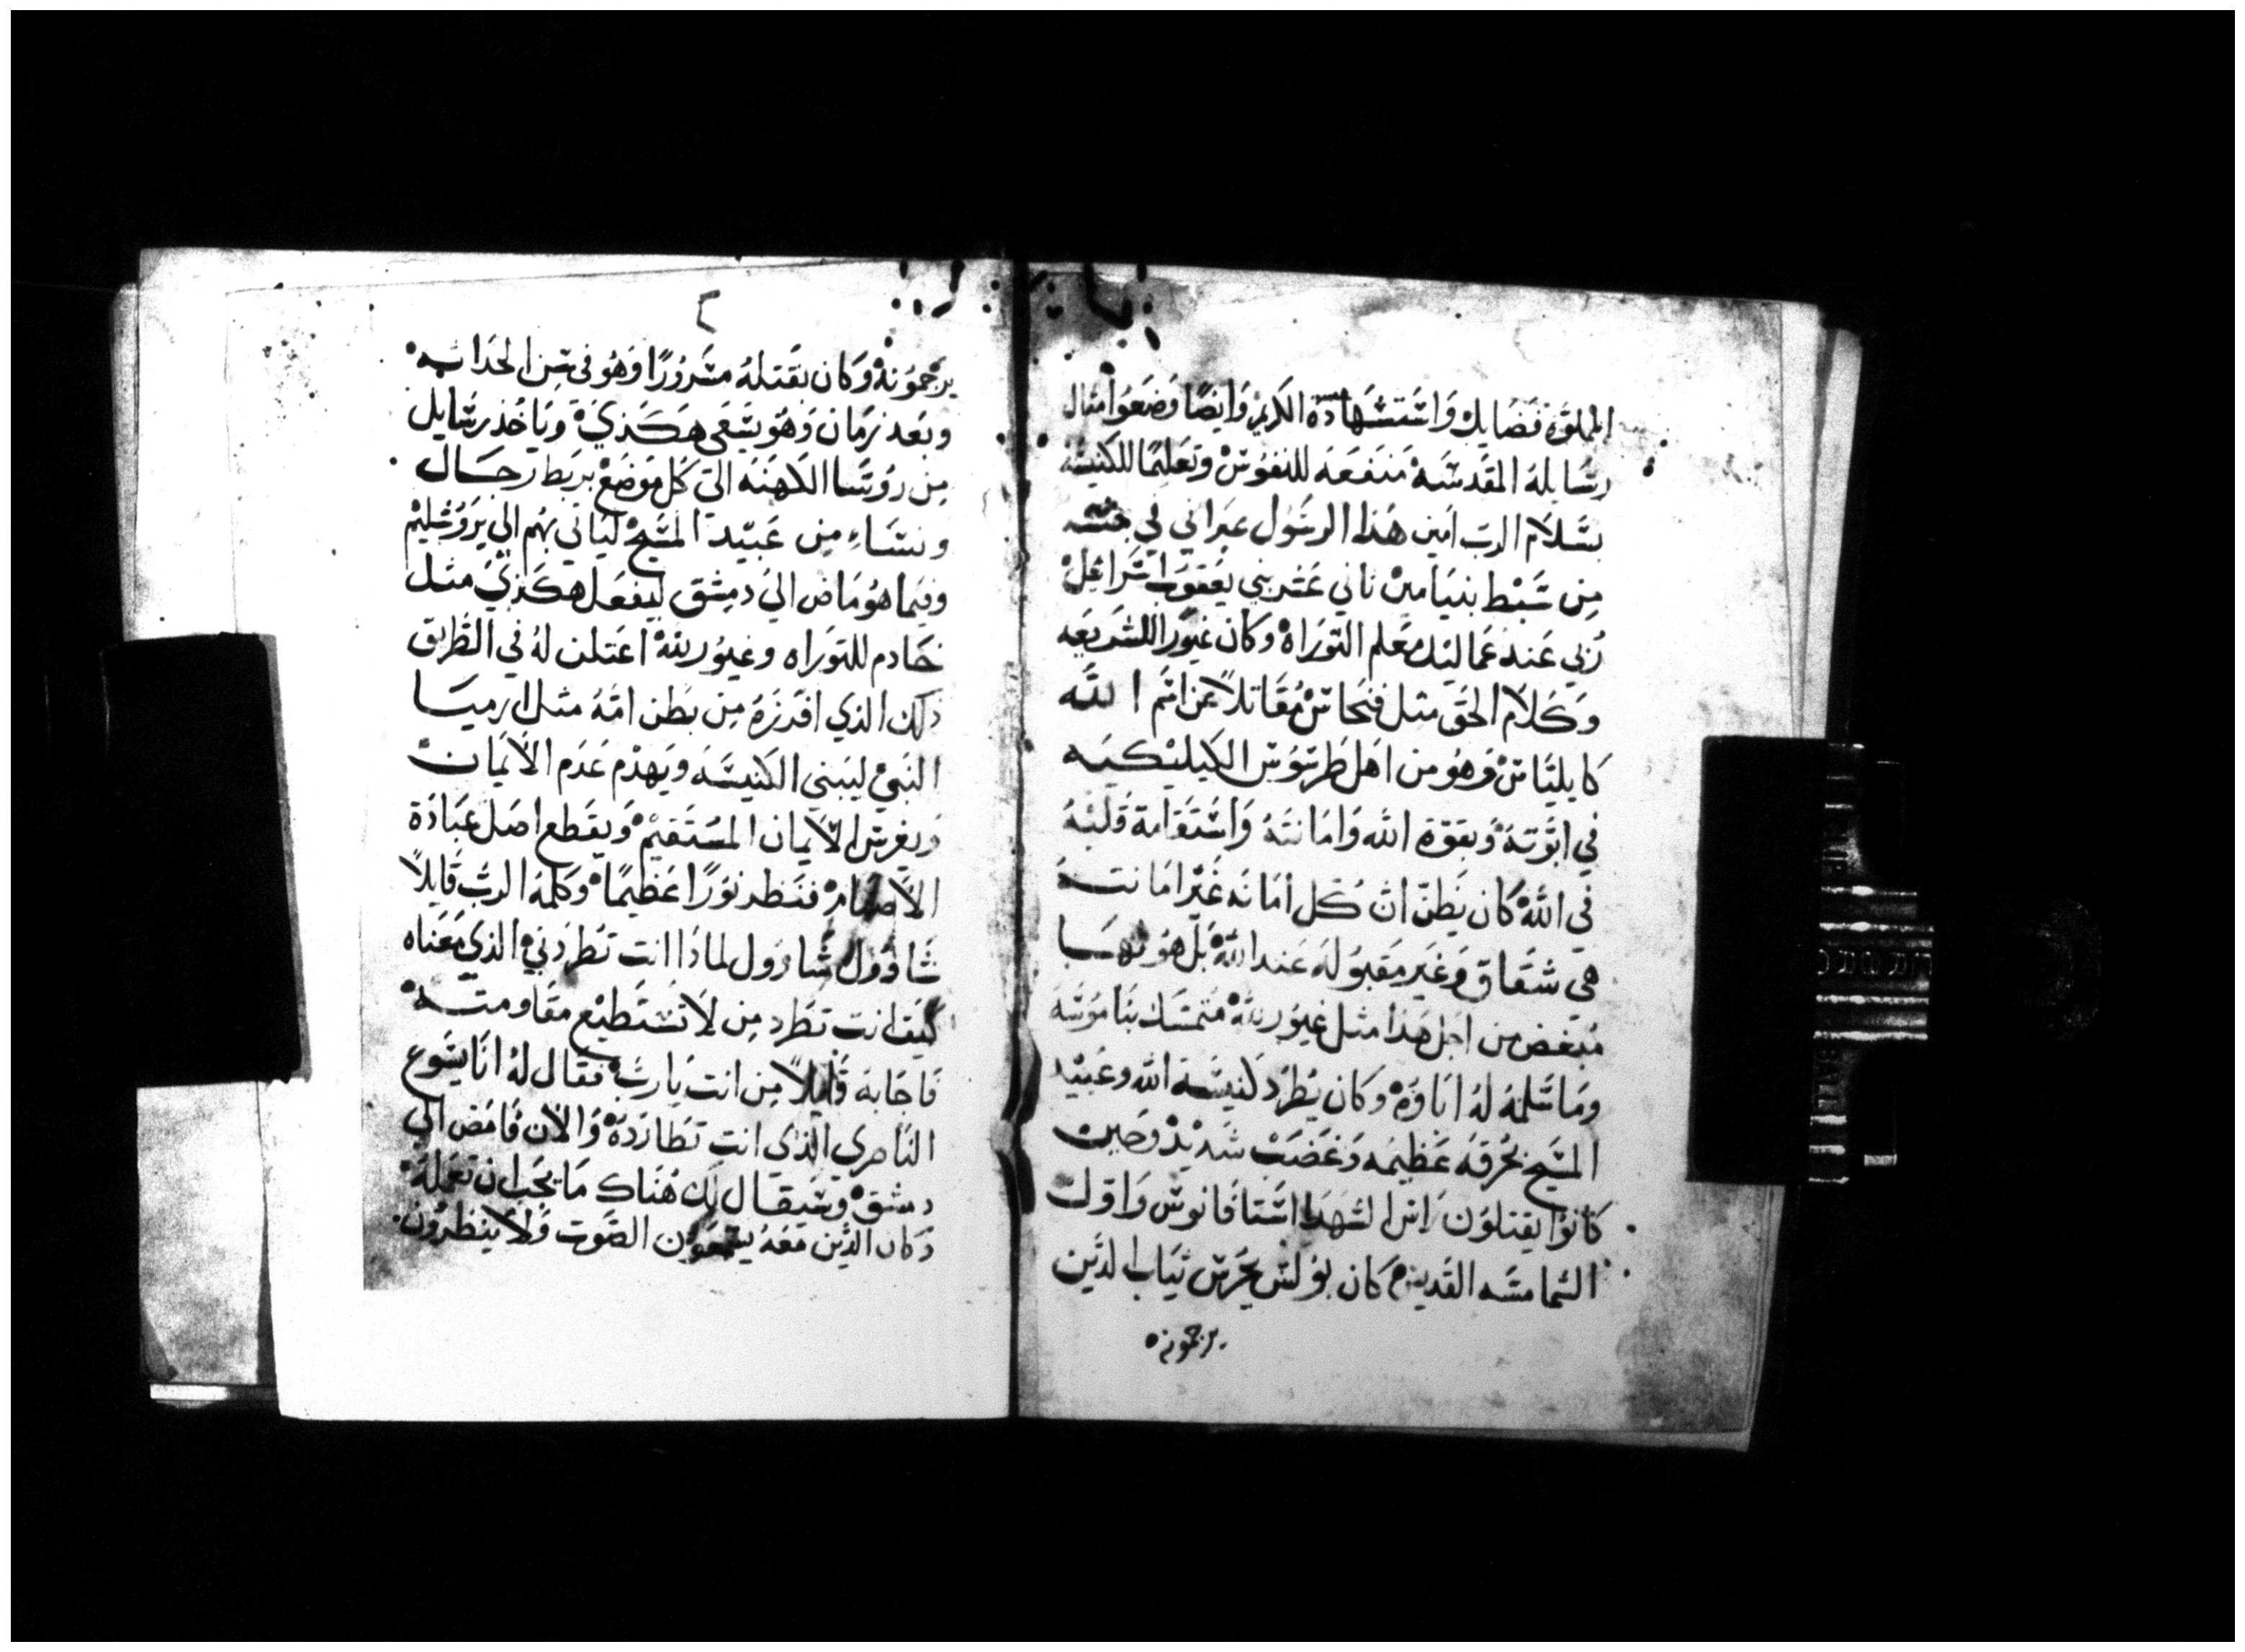 المملوة فضايل واستشهاده الكريم وايضا وضعوا مثال
رسايله المقدسه منفعه للنفوس وتعليما للكنيسه
بسلام الرب امين هذا الرسول عبراني في جنسه
من سبط بنيامين ثاني عشر بني يعقوب اسرائيل
ربي عند غماليل معلم التوراه وكان غيورا للشريعه
وكلام الحق مثل فنحاس مقاتلا عن اسم الله
وهو من اهل طرسوس الكيليكيه
في ابوته وبقوة الله وامانته واستقامة قلبه
في الله كان يظن ان كل امانه غير امانته
هي شقاق وغير مقبوله عند الله بل هو لها
مبغض من اجل هذا مثل غيور لله متمسك بناموسه
وما سلمه له اباوه وكان يطرد كنيسة الله وعبيد
المسيح بحرقه عظيمه وغضب شديد وحين
كانوا يقتلون راس الشهدا استافانوس واول
الشمامسه القديس كان بولس يحرس ثياب الذين
يرجمونه
٢
يرجمونه وكان بقتله مسرورا وهو في سن الحداثه
وبعد زمان وهو يسعى هكذي وياخذ رسايل
من روسا الكهنه الي كل موضع بربط رجال
ونساء من عبيد المسيح لياتي بهم الي يروشليم
وفيما هو ماض الي دمشق ليفعل هكذي مثل
خادم للتوراه وغيور لله اعتلن له في الطريق
ذلك الذي افرزه من بطن امه مثل ارميا
النبي ليبني الكنيسه ويهدم عدم الايمان
ويغرس الايمان المستقيم ويقطع اصل عبادة
الاصنام فنظر نورا عظيما وكلمه الرب قايلا
شاوول شاوول لماذا انت تطردني الذي معناه
كيف انت تطرد من لا تستطيع مقاومته
فاجابه قايلا من انت يارب فقال له انا يسوع
الناصري الذي انت تطارده والان فامض الي
دمشق وسيقال لك هناك ما يجب ان تعمله
وكان الذين معه يسمعون الصوت ولا ينظرون